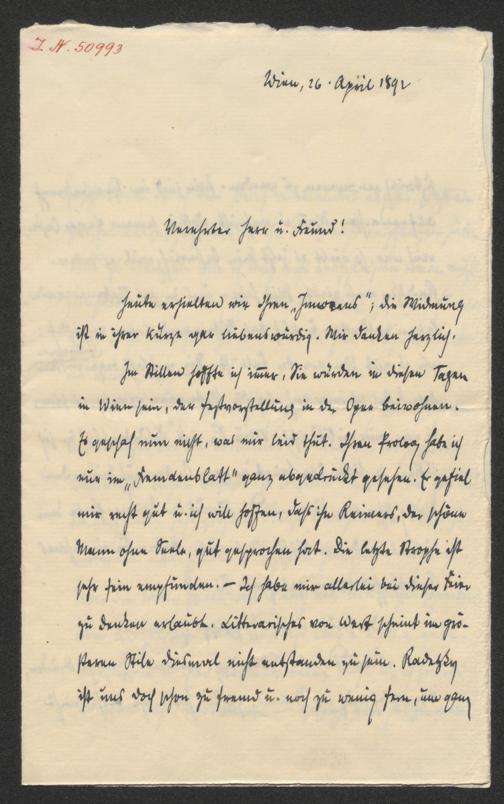 I. N. 50993
Wien, 26. April 1892
Verehrter Herr u. Freund!
Heute erhielten wir Ihren „Jmrozens"; die Widmung
ist in ihrer Kürze gar liebenswürdig. Wir danken herzlich.
Im Stillen hoffte ich immer, Sie würden in diesen Tagen
in Wien sein, der Festvorstellung in der Oper beiwohnen.
Es geschah nun nicht, was mir leid thut. Ihren Prolog habe ich
nur im „Fremdenblatt" ganz abgedruckt gesehen. Er gefiel
mir recht gut u. ich will hoffen, dass ihn Reimers, der schöne
Mann ohne Seele, gut gesprochen hat. Die letzte Strophe ist
sehr fein empfunden. – Ich habe mir allerlei bei dieser Feier
zu denken erlaubt. Litterarisches von Wert scheint im grö-
ßeren Stile diesmal nicht entstanden zu sein. Radetzky
ist uns doch schon zu fremd u. noch zu wenig fern, um ganz